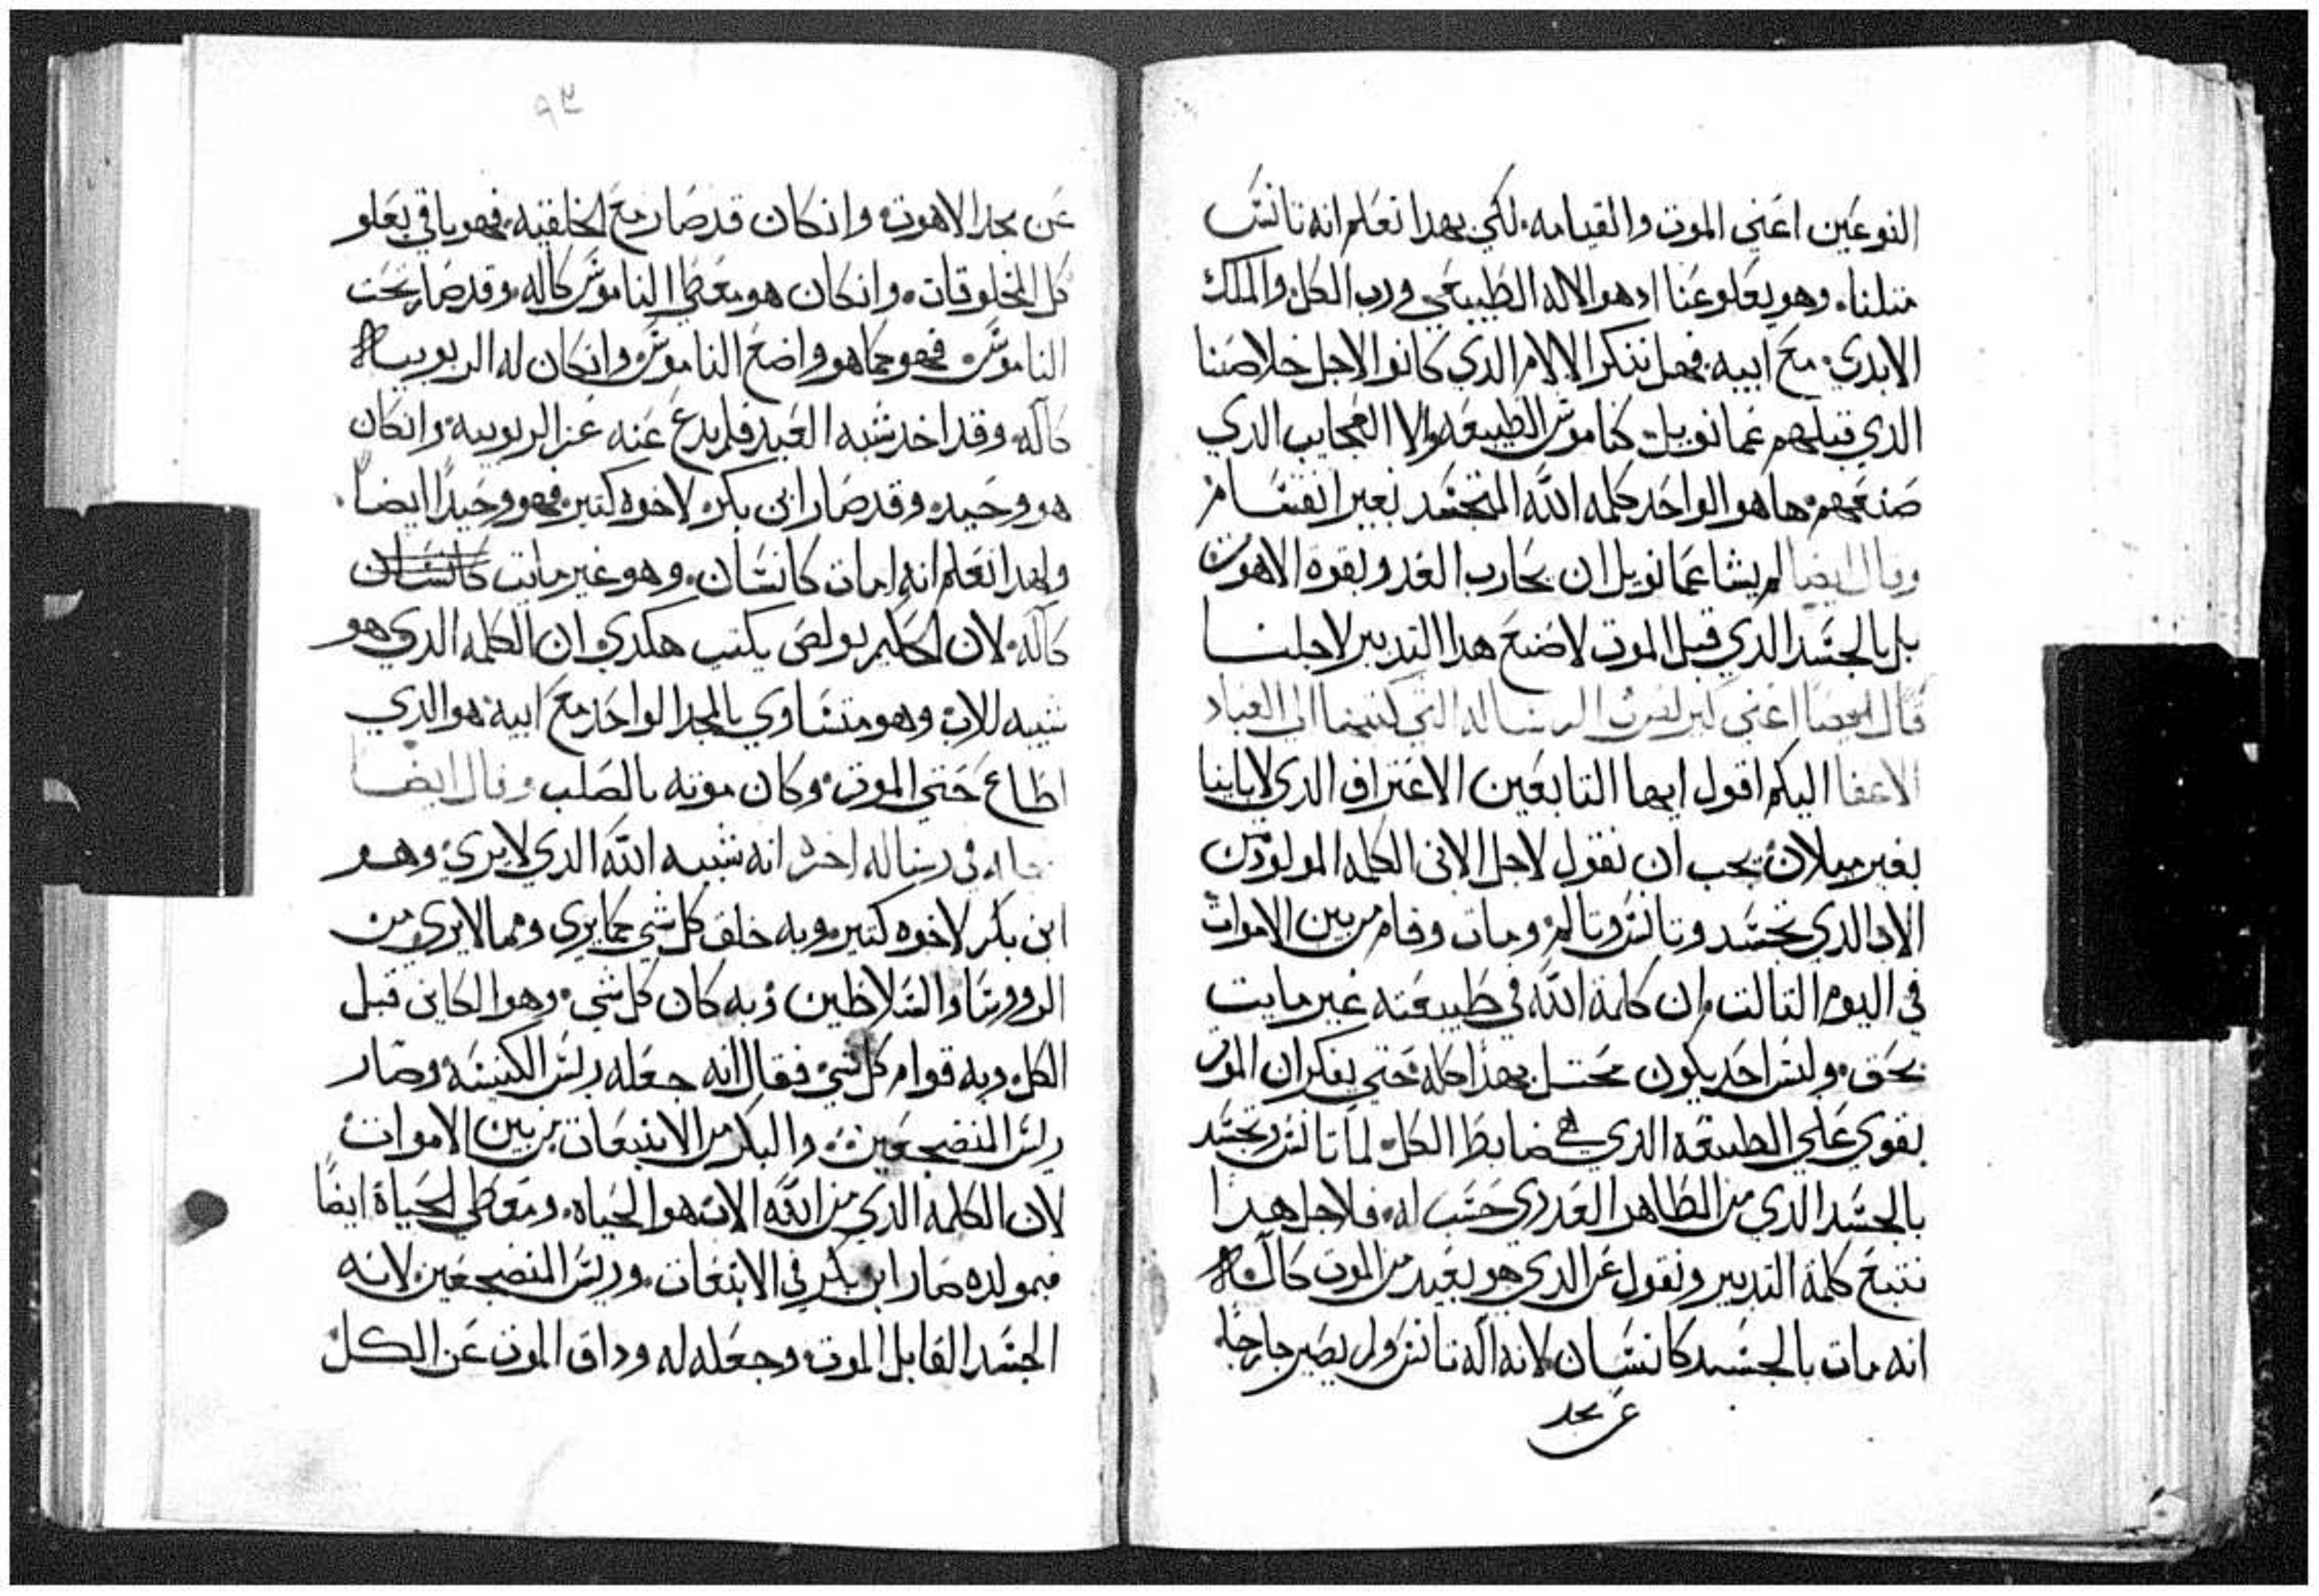 النوعين اعني الموت والقيامه. لكي بهدا نعلم انه تانس
متلنا. وهو يعلو عنا اد هو الاله الطبيعي ورب الكل والملك
الابدي. مع ابيه. فهل ننكر الالام الدي كانوا لاجل خلاصنا
الدي قبلهم عمانويل. كناموس الطبيعه والا العجايب الدي
صنعهم. ها هو الواحد كلمه الله المتجسد بغير انقسام
وقال ايضا لم يشا عمانويل ان يحارب العدو بقوة الاهوت
بل بالجسد الدي قبل الموت لاضنع هدا التدبير لاجلنا
قال ايضا اعني كيرلص في الرساله التي كتبها الي العباد
الاعفا اليكم اقول ايها التابعين الاعتراف الدي لابابنا
بغير ميلان يجب ان نقول لاجل الابن الكلمه المولود من
الاب الدي تجسد وتانس وتالم ومات وقام من بين الاموات
في اليوم التالت وان كلمة الله في طبيعته غير مايت
بحق. وليس احد يكون مختل بهدا كله حتي يفكر ان الموت
يقوي علي الطبيعه الدي هي ضابط الكل. لما تانس وتجسد
بالجسد الدي من الطاهر العدري حسب له. فلاجل هدا
نتبع كلمة التدبير ونقول عن الدي هو بعيد من الموت كاله
انه مات بالجسد كانسان لانه اله تانس ولم يصير خارجا.
عن مجد
٩٣
عن مجد الاهوت. وانكان قد صار مع الخلقيه. فهو باقي يعلو
كل المخلوقات. وانكان هو معطي الناموس كاله. وقد صار تحت
الناموس. فهو كما هو واضع الناموس وانكان له الربوبيه
كاله. وقد اخد شبه العبد فلم يدع عنه عز الربوبيه. وانكان
هو وحيده وقد صار ابن بكر. لاخوه كتير. فهو وحيدا ايضا.
ولهدا نعلم انه امات كانسان. وهو غير مايت كانسان
كاله. لان الحكيم بولص يكتب هكدي ان الكلمه الدي هو
شبيه للاب وهو متساوي بالمجد الواحد مع ابيه هو الدي
اطاع حتي الموت. وكان موته بالصلب وقال ايضا
في رساله اخره انه شبيه الله الدي لا يري. وهو
ابن بكر لاخوه كتير. وبه خلق كل شي مما يري ومما لا يري من
الروورسا والسلاطين وبه كان كل شي. وهوا الكاين قبل
الكل. وبه قوام كل شي فقال انه جعله ريس الكنيسه وصار
ريس المنضجعين. والبكر من الانبعات من بين الاموات
لان الكلمه الدي من الله الاب هوا الحياه. ومعطي الحياة ايضا
فبمولده صار ابن بكر في الانبعات. وريس المنضجعين لانه
الجسد القابل الموت وجعله له وداق الموت عن الكل